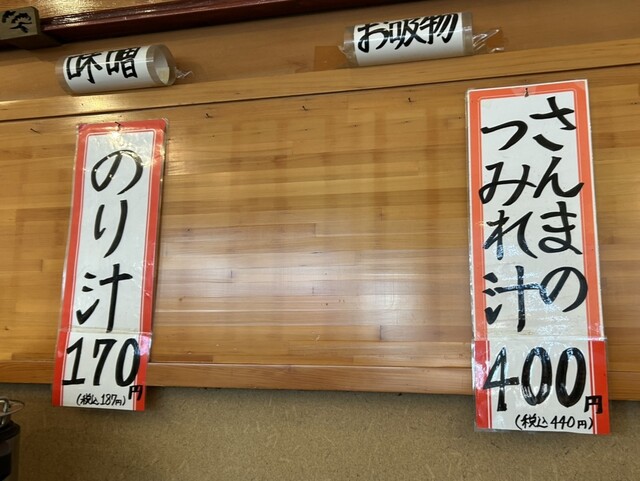 味噌
お吸物
のり汁
170円
(税込187円)
さんまの
つみれ汁
400円
(税込440円)